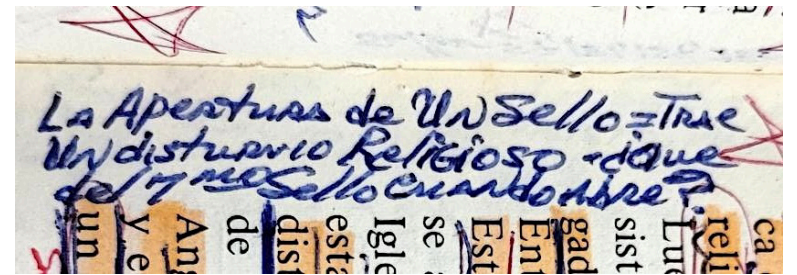 La Apertura de Un Sello = Trae
Un disturvio Religioso - ¿ique
del 7mo Sello cuando Abre?.
un
y e
Ang
de
dist
esta
Igle
se
Est
Ent
gad
sist
Luc
reli
ca